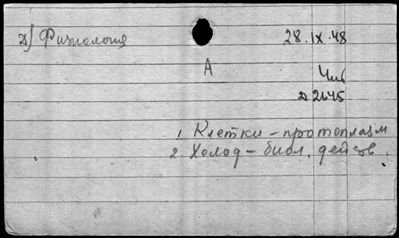 Д) Физиология 28.IX.48
А
Д 2645
1. Клетки – протоплазм
2. Холод – биол. действ.